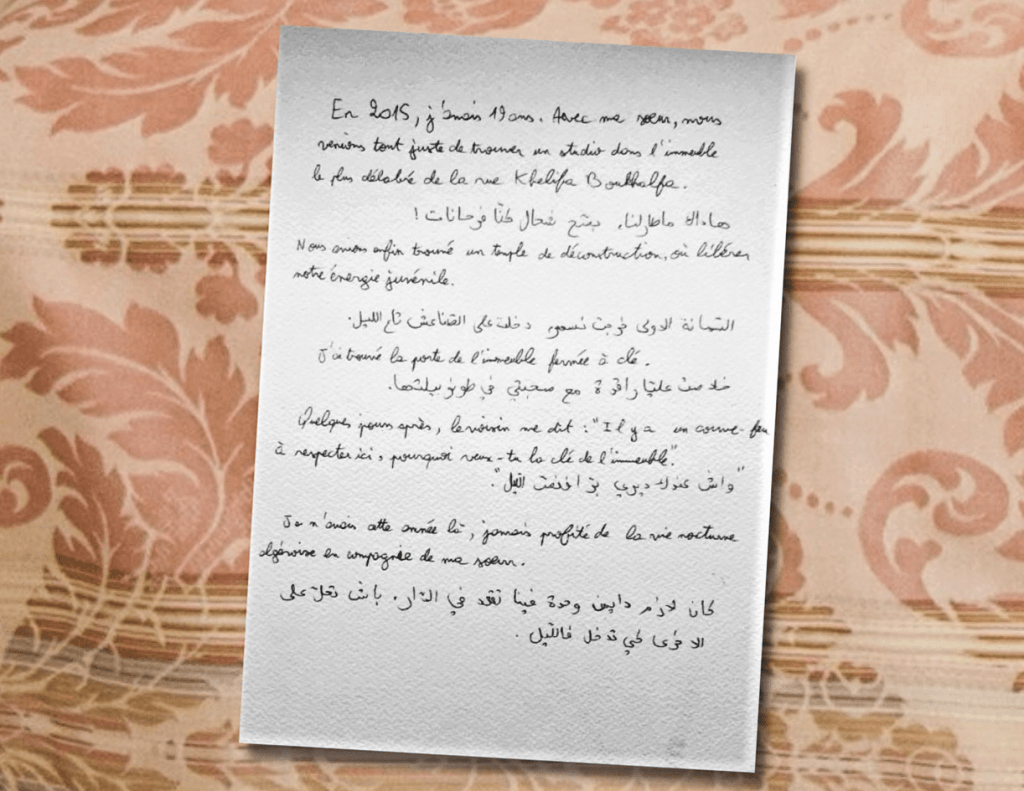 En 2015, j'avais 19 ans. Avec ma sœur, nous
venions tout juste de trouver un studio dans l'immeuble
le plus délabré de la rue Khelifa Boukhalfa.
هاداك ماطارلنا، بصح شحال كنّا فرحانات !
Nous avons enfin trouvé un temple de déconstruction, où libérer
notre énergie juvénile.
السّمانة الاولى خرجت نسهر، دخلت على الطناعش تاع الليل.
J'ai trouvé la porte de l'immeuble fermée à clé.
خلاصت عليّا راقدة مع صحبتي في طونوبيلتها.
Quelques jours après, le voisin me dit : "Il y a un couvre-feu
à respecter ici, pourquoi veux-tu la clé de l'immeuble".
"واش عندك ديري برّا فنصف اللّيل".
Je n'avais cette année là, jamais profité de la vie nocturne
algéroise en compagnie de ma sœur.
كان لازم دايمن وحدة فينا تقعد في الدّار، باش تحلّ على
الاخرى كي تدخل فاللّيل.